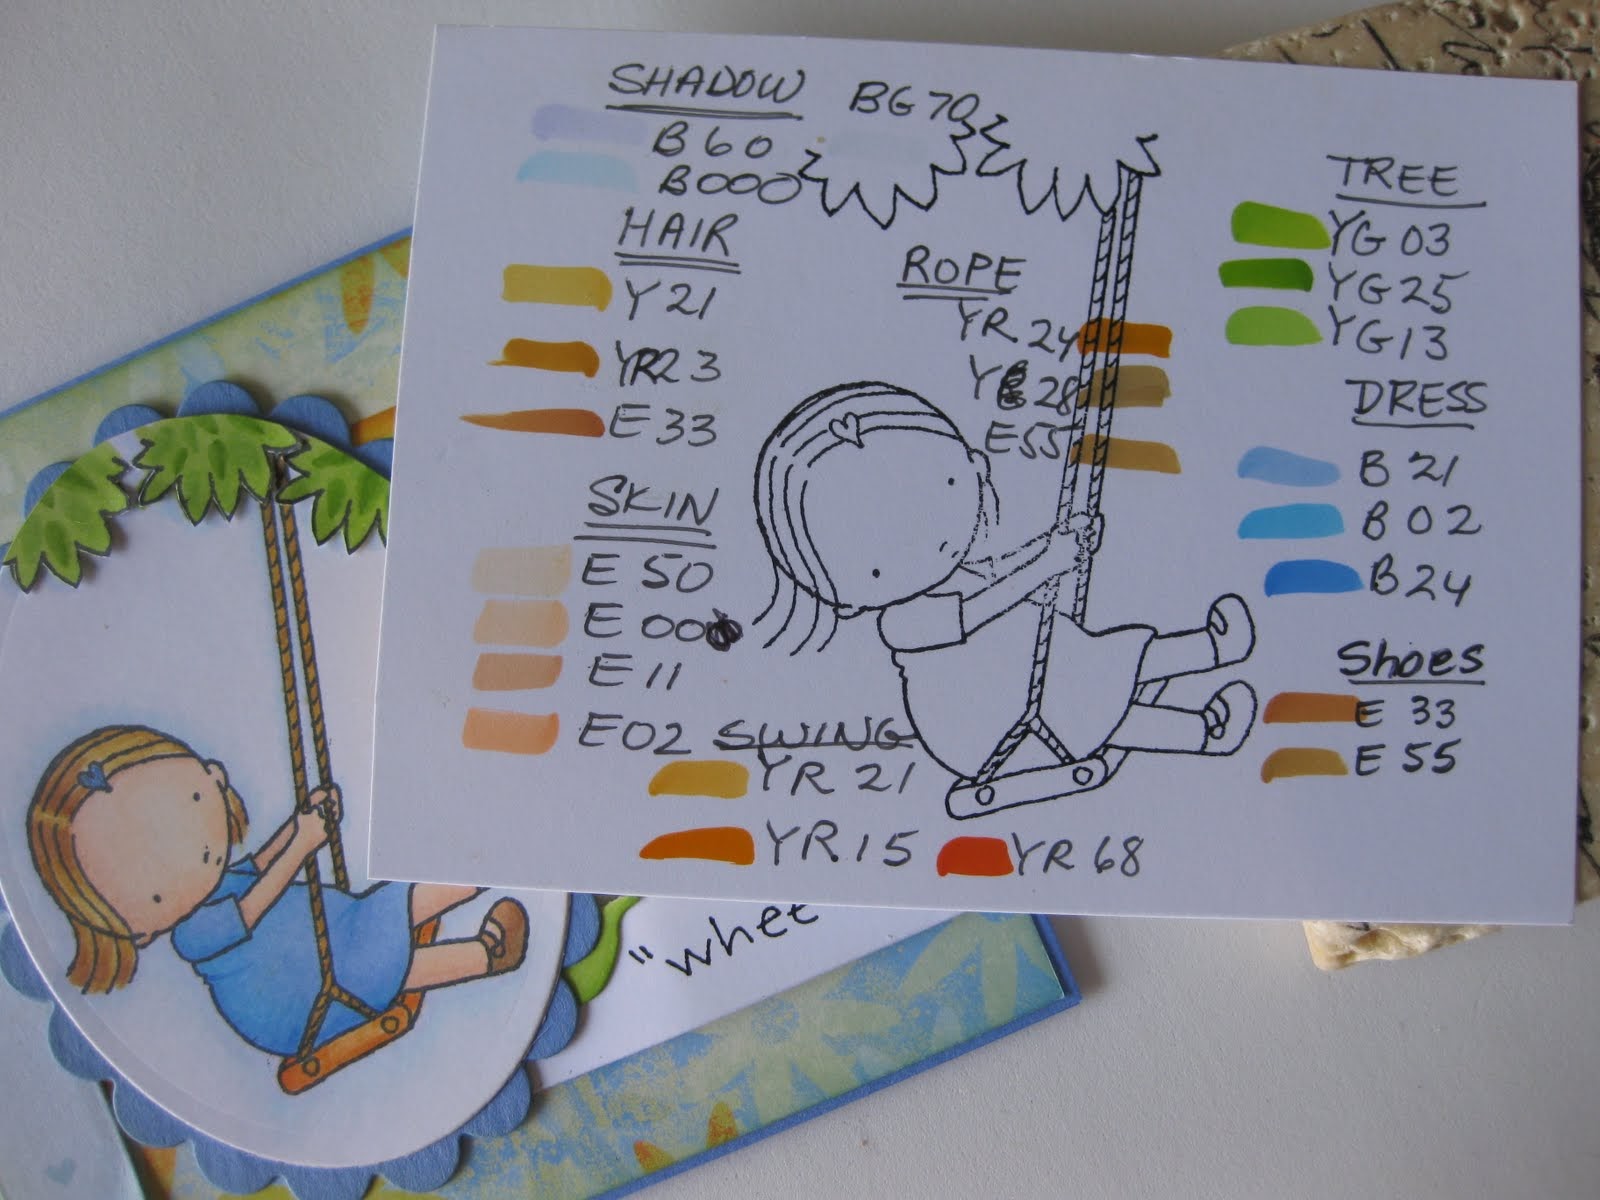 SHADOW BG 70
B 60
B000
HAIR
Y 21
YR23
E 33
SKIN
E 50
E 00
E 11
E02
SWING
YR 21
YR 15
YR 68
ROPE
YR 24
28
E55
TREE
YG 03
YG 25
YG 13
DRESS
B 21
B 02
B 24
Shoes
E 33
E 55
"whee